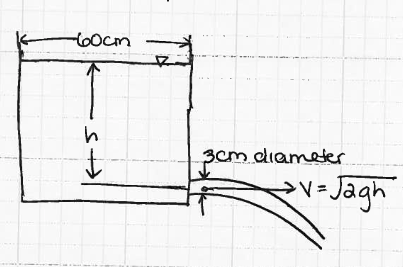 60cm
h
3cm diameter
V = √2gh